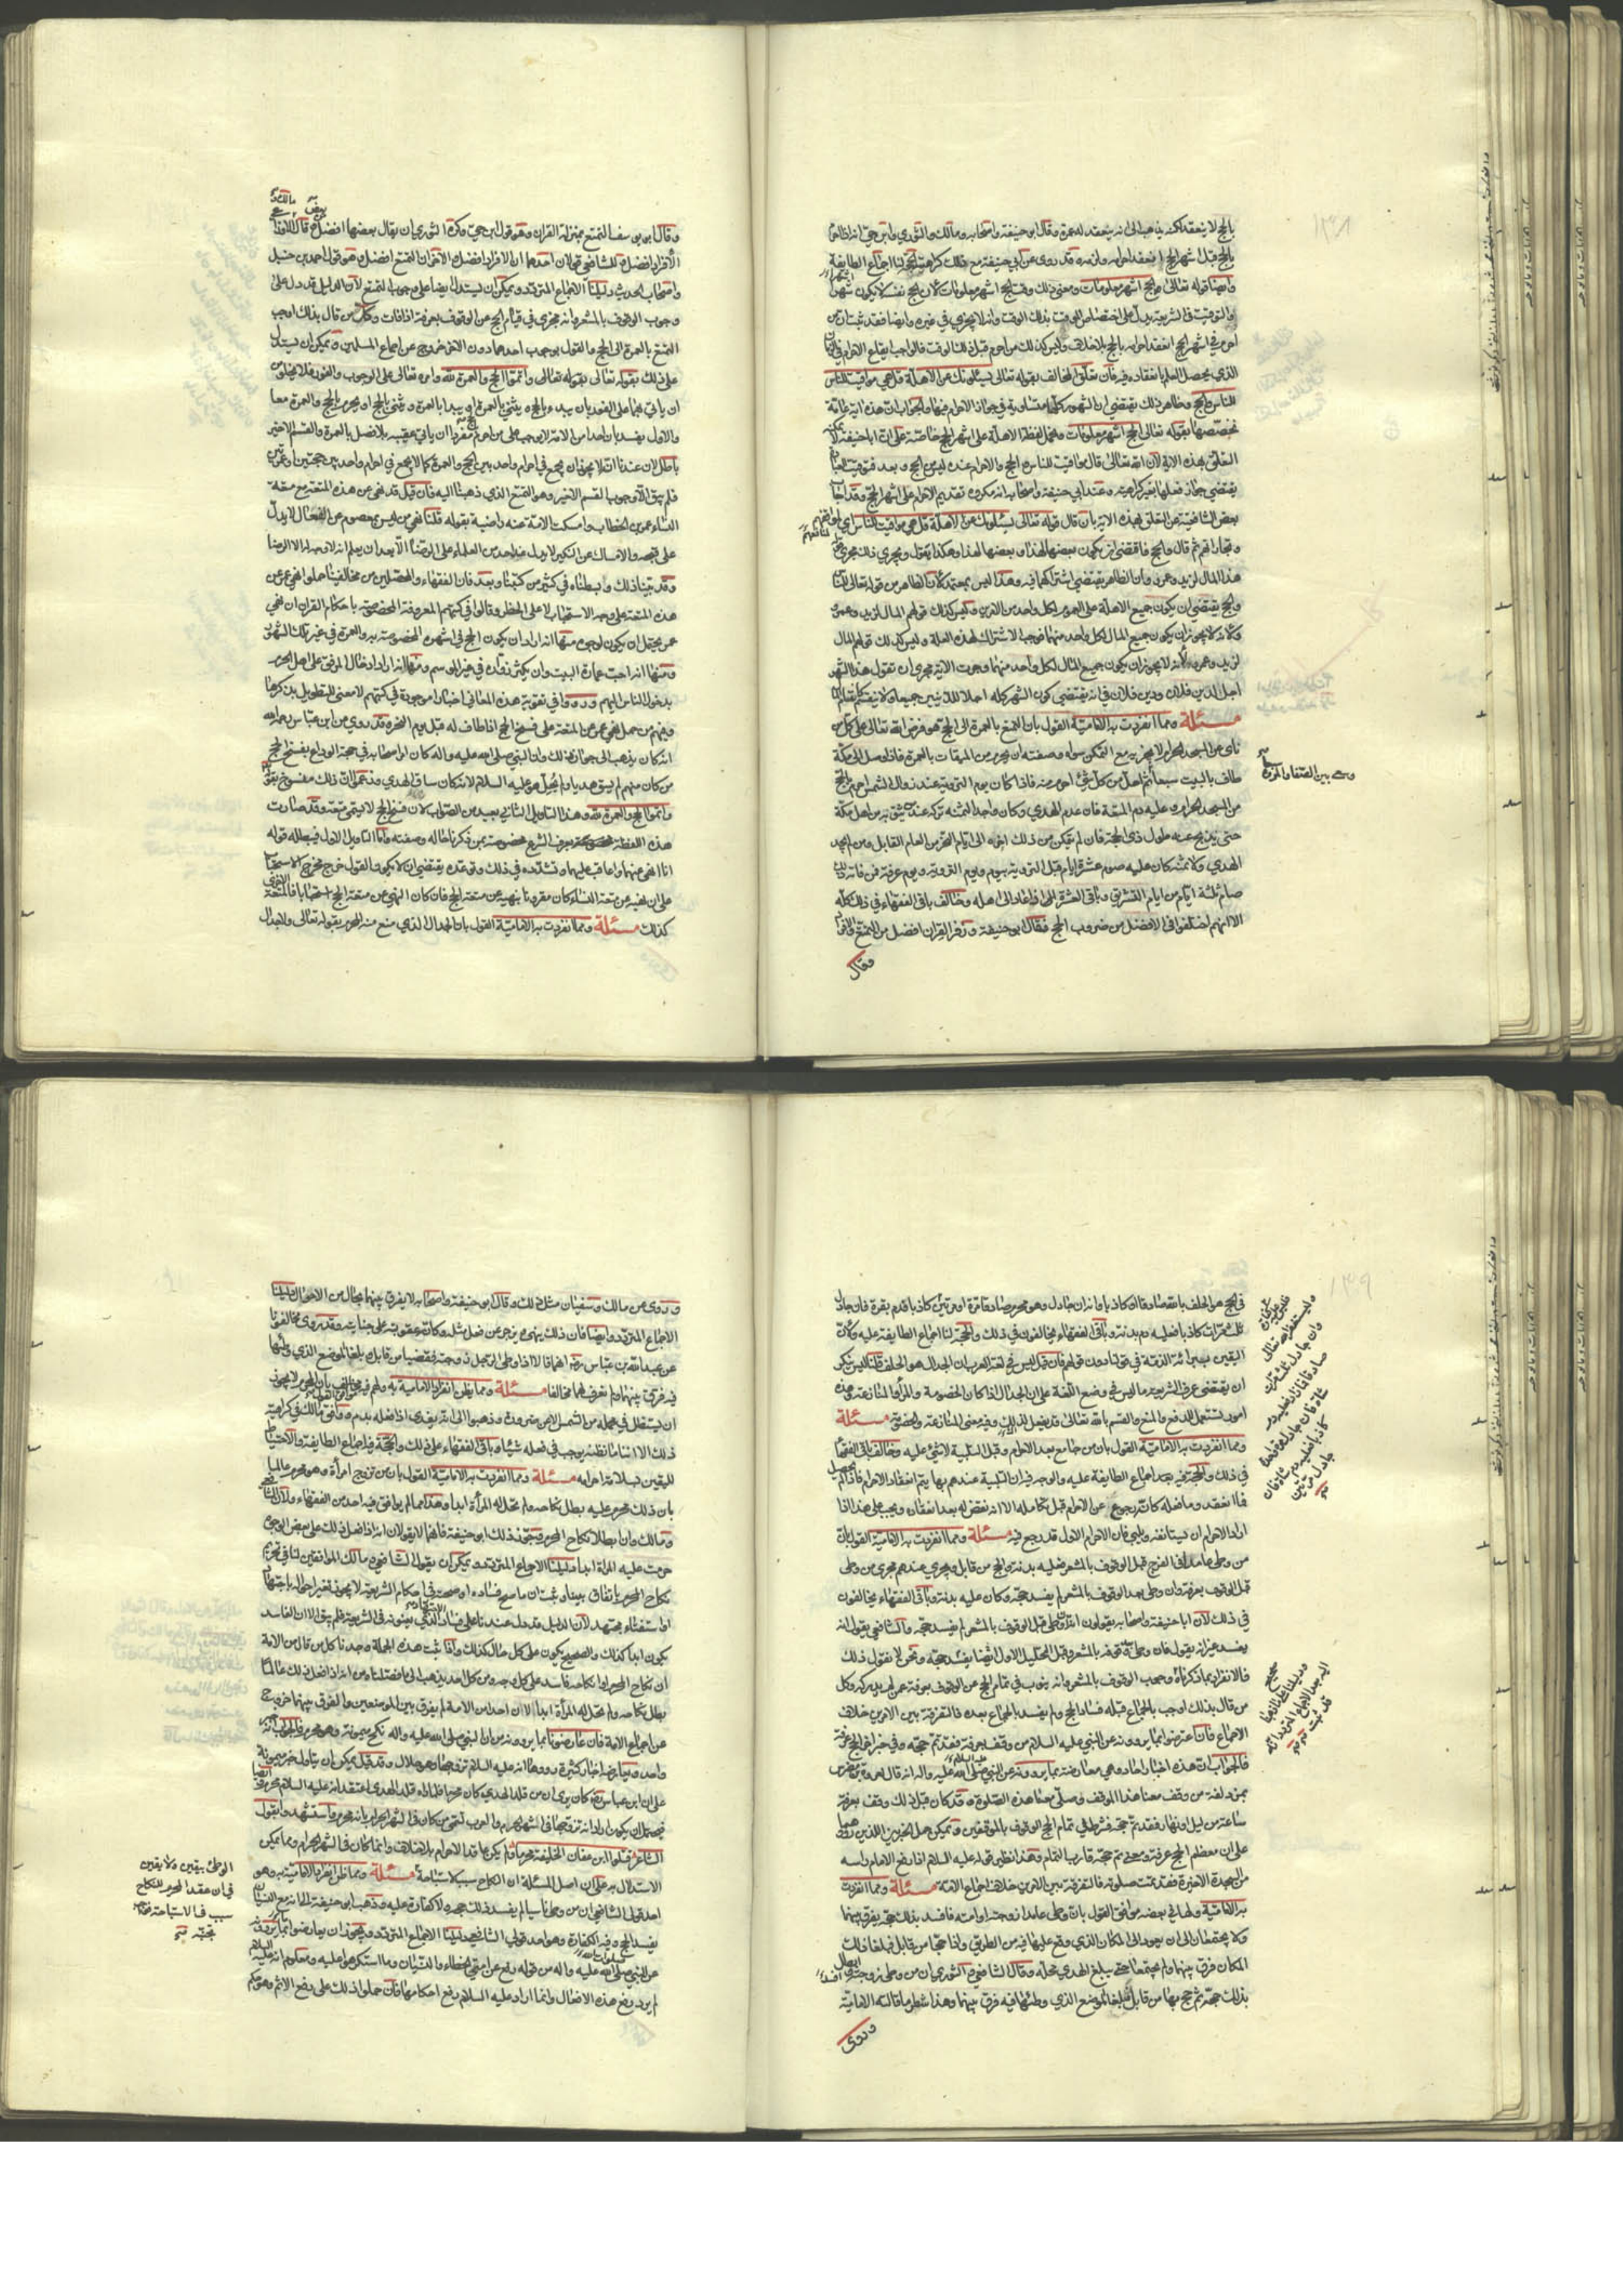 ١٣٨
بالحج لا ينعقد لكنه يذهب الى انه ينعقد له عمرة وقال ابو حنيفة واصحابه ومالك والثوري وابن حي انه اذا احرم
بالحج قبل اشهر الحج انعقد احرامه ولزمه وقد روى عن ابي حنيفة مع ذلك كراهيته دليلنا اجماع الطايفة
وايضا قوله تعالى الحج اشهر معلومات ومعنى ذلك وقت الحج اشهر معلومات لان الحج نفسه لا يكون شهورا
والتوقيت في الشريعة يدل على اختصاص الموقت بذلك الوقت وانه لا يجزي في غيره وايضا فقد ثبت ان من
احرم في اشهر الحج انعقد احرامه بالحج بلا خلاف وليس كذلك من احرم قبل ذلك فالواجب ايقاع الاحرام في الزمان
الذي يحصل العلم بانعقاده فيه فان تعلق المخالف بقوله تعالى يسئلونك عن الاهلة قل هي مواقيت للناس
للناس والحج وظاهر ذلك يقتضي ان الشهور كلها متساوية في جواز الاحرام فيها والجواب ان هذه اية عامة
نخصصها بقوله تعالى الحج اشهر معلومات ونحمل لفظة الاهلة على اشهر الحج خاصة على ان ابا حنيفة لا يمكنه
التعلق بهذه الاية لان الله تعالى قال مواقيت للناس والحج والاحرام عنده ليس من الحج وبعد فتوقيت العبادة
يقتضي جواز فعلها بغير كراهية وعند ابي حنيفة واصحابه انه مكروه تقديم الاحرام على اشهر الحج وقد اجاب
بعض الشافعية عن التعلق بهذه الاية بان قال قوله تعالى يسئلونك عن الاهلة قل هي مواقيت للناس اي لمنافعهم
وتجاراتهم ثم قال والحج فاقتضى ان يكون بعضها لهذا وبعضها لهذا وهكذا نقول ويجري ذلك مجرى قولنا
هذا المال لزيد وعمرو وان الظاهر يقتضي اشتراكهما فيه وهذا ليس بمعتمد لان الظاهر من قوله تعالى للناس
والحج يقتضي ان يكون جميع الاهلة على العموم لكل واحد من الامرين وليس كذلك قولهم المال لزيد وعمرو
لزيد وعمرو لانه لا يجوز ان يكون جميع المال لكل واحد منهما وجرت الاية مجرى ان نقول هذا الشهر
اجل لدين فلان ودين فلان في انه يقتضي كون الشهر كله اجلا للدينين جميعا
مسئلة ومما انفردت به الامامية القول بان التمتع بالعمرة الى الحج هو فرض الله تعالى على كل من
ناى عن المسجد الحرام لا يجزيه مع التمكن سواه وصفته ان يحرم من الميقات بالعمرة فاذا وصل الى مكة
طاف بالبيت سبعا ثم احل من كل شئ احرم منه فاذا كان يوم التروية عند زوال الشمس احرم بالحج
وسعى بين الصفا والمروة
من المسجد الحرام وعليه دم المتعة فان عدم الهدي وكان واجدا لثمنه تركه عند من يثق به من اهل مكة
حتى يذبح عنه طول ذي الحجة فان لم يتمكن من ذلك اخره الى ايام النحر من العام القابل ومن لم يجد
الهدي ولا ثمنه كان عليه صوم عشرة ايام قبل التروية بيوم ويوم التروية ويوم عرفة فمن فاته ذلك
صام ثلثة ايام من ايام التشريق وباقي العشرة اذا عاد الى اهله وخالف باقي الفقهاء في ذلك كله
الا انهم اختلفوا في الافضل من ضروب الحج فقال ابو حنيفة وزفر القران افضل من التمتع والافراد
وقال
وقال ابو يوسف التمتع بمنزلة القران وهو قول ابن حي وكره الثوري ان يقال بعضها افضل من بعض وقال مالك
الافراد افضل وللشافعي قولان احدهما ان الافراد افضل والاخر ان التمتع افضل وهو قول احمد بن حنبل
واصحاب الحديث دليلنا الاجماع المتردد ويمكن ان يستدل ايضا على وجوب التمتع لان الدليل قد دل على
وجوب الوقوف بالمشعر وانه مجزي في تمام الحج عن الوقوف بعرفة اذا فات وكل من قال بذلك اوجب
التمتع بالعمرة الى الحج والقول بوجوب احدهما دون الاخر خروج عن اجماع المسلمين ويمكن ان يستدل
على ذلك بقوله تعالى واتموا الحج والعمرة لله وامره تعالى على الوجوب والفور فلا يخلو من
ان ياتي بهما على الفور بان يبدء بالحج ويثني بالعمرة او يبدا بالعمرة ويثني بالحج او يحرم بالحج والعمرة معا
والاول يفسد بان احدا من الامة لا يوجب على من احرم بالحج مفردا ان ياتي عقيبه بلا فصل بالعمرة والقسم الاخير
باطل لان عندنا انه لا يجوز ان يجمع في احرام واحد بين الحج والعمرة كما لا يجمع في احرام واحد بين حجتين او عمرتين
فلم يبق الا وجوب القسم الاخير وهو التمتع الذي ذهبنا اليه فان قيل قد نهى عن هذه المتعة مع متعة
النساء عمر بن الخطاب وامسكت الامة عنه راضية بقوله قلنا نهي من ليس بمعصوم عن الفعل لا يدل
على قبحه والامساك عن النكير لا يدل عند احد من العلماء على الرضا الا بعد ان يعلم انه لا وجه له الا الرضا
وقد بينا ذلك وبسطناه في كثير من كتبنا وبعد فان الفقهاء والمحصلين من مخالفينا حملوا نهي عمر عن
هذه المتعة على وجه الاستحباب لا على الحظر وقالوا في كتبهم المعروفة المخصوصة باحكام القران ان نهي
عمر يحتمل ان يكون لوجوه منها انه اراد ان يكون الحج في اشهره المخصوصة به والعمرة في غير تلك الشهور
ومنها انه احب عمارة البيت وان يكثر زواره في غير الموسم ومنها انه اراد ادخال المرفق على اهل الحرم
بدخول الناس اليهم ورووا في تقوية هذه المعاني اخبارا موجودة في كتبهم لا معنى للتطويل بذكرها
وفيهم من حمل نهي عمر عن المتعة على فسخ الحج اذا طاف له قبل يوم النحر وقد روي عن ابن عباس رحمه الله
انه كان يذهب الى جواز ذلك وان النبي صلى الله عليه واله كان امر اصحابه في حجة الوداع بفسخ الحج
من كان منهم لم يسق هديا ولم يحل هو عليه السلام لانه كان ساق الهدي وزعموا ان ذلك منسوخ بقوله
واتموا الحج والعمرة لله وهذا التاويل الثاني بعيد من الصواب لان فسخ الحج لا يسمى متعة وقد صارت
هذه اللفظة بعرف الشرع مخصوصة بمن ذكرنا حاله وصفته واما التاويل الاول فيبطله قوله
انا انهى عنهما واعاقب عليهما وتشدده في ذلك وتوعده يقتضي ان لا يكون القول خرج مخرج الاستحباب
على ان نهيه عن متعة النساء كان مقرونا بنهيه عن متعة الحج فان كان النهي عن متعة الحج استحبابا فالمتعة الاخرى
كذلك مسئلة ومما انفردت به الامامية القول بان الجدال الذي منع منه المحرم بقوله تعالى ولا جدال
١٣٩
في الحج هو الحلف بالله صادقا او كاذبا وانه ان جادل وهو محرم صادقا مرة او مرتين كاذبا فدم بقرة فان جادل
ثلث مرات كاذبا فعليه دم بدنة وباقي الفقهاء يخالفون في ذلك والحجة لنا اجماع الطايفة عليه ولان
اليقين ببرائة الذمة في قولنا دون قولهم فان قيل ليس في لغة العرب ان الجدال هو الحلف قلنا ليس ننكر
ان يقتضى عرف الشريعة ما ليس في وضع اللغة على ان الجدال اذا كان الخصومة والمراء والمنازعة وهذه
امور تستعمل للدفع والمنع والقسم بالله تعالى قد يفعل لذلك وفيه معنى المنازعة والخصومة مسئلة
ومما انفردت به الامامية القول بان من جامع بعد الاحرام وقبل التلبية لا شئ عليه وخالف باقي الفقهاء
في ذلك والحجة فيه بعد اجماع الطايفة عليه والوجه فيه ان التلبية عندهم بها يتم انعقاد الاحرام فاذا لم يحصل
فما انعقد وما فعله كانه رجوع عن الاحرام قبل تكامله الا انه نقض له بعد انعقاده ويجب على هذا اذا
اراد الاحرام ان يستانفه ويلبي فان الاحرام الاول قد رجع فيه مسئلة ومما انفردت به الامامية القول بان
من وطئ عامدا في الفرج قبل الوقوف بالمشعر فعليه بدنة والحج من قابل ويجري عندهم مجرى من وطئ
قبل الوقوف بعرفة وان وطئ بعد الوقوف بالمشعر لم يفسد حجه وكان عليه بدنة وباقي الفقهاء يخالفون
في ذلك لان ابا حنيفة واصحابه يقولون انه ان وطئ قبل الوقوف بالمشعر لم يفسد حجه والشافعي يقول انه
يفسد غير انه يقول فان وطئ بعد وقوفه بالمشعر وقبل التحليل الاول ايضا يفسد حجه ونحن لا نقول ذلك
فالانفراد بما ذكرناه وجوب الوقوف بالمشعر وانه ينوب في تمام الحج عن الوقوف بعرفة عمن لم يدركه وكل
من قال بذلك اوجب بالجماع قبله فساد الحج ولم يفسد بالجماع بعده فالتفرقة بين الامرين خلاف
الاجماع فان اعترضوا بما يروونه عن النبي عليه السلام من وقف بعرفة فقد تم حجه وفي خبر اخر الحج عرفة
فالجواب ان هذه اخبار احاد وهي معارضة بما يروونه عن النبي صلى الله عليه واله انه قال لعروة بن مضرس
بمزدلفة من وقف معنا هذا الموقف وصلى معنا هذه الصلوة وقد كان قبل ذلك وقف بعرفة
ساعة من ليل او نهار فقد تم حجه فشرط في تمام الحج الوقوف بالموقفين ويمكن حمل الخبرين اللذين رووهما
على ان معظم الحج عرفة ومعنى تم حجه قارب التمام وهذا نظير قوله عليه السلام اذا رفع الامام راسه
من السجدة الاخيرة فقد تمت صلوته فالتفرقة بين الامرين خلاف اجماع الامة مسئلة ومما انفردت
به الامامية ولها في بعضه موافق القول بان من وطئ عامدا زوجته او امته فافسد بذلك حجه يفرق بينهما
ولا يجتمعان الى ان يعودا الى المكان الذي وقع عليها فيه من الطريق واذا حجا من قابل فبلغا ذلك
المكان فرق بينهما ولم يجتمعا حتى يبلغ الهدي محله وقال الشافعي والثوري ان من وطئ زوجته وافسد
بذلك حجه ثم حج بها من قابل فبلغا الموضع الذي وطئها فيه فرق بينهما وهذا شطر ما قالته الامامية
وروى
وروى عن مالك وسفيان مثل ذلك وقال ابو حنيفة واصحابه لا يفرق بينهما بحال من الاحوال دليلنا
الاجماع المتردد وايضا فان ذلك ينهى ويزجر عن فعل مثله وكانه عقوبة على جنايته وقد روى مخالفونا
عن عبد الله بن عباس رضه انهما قالا اذا وطئ الرجل زوجته فقضيا من قابل وبلغا الموضع الذي وطئها
فيه فرق بينهما ولم نعرف لهما مخالفا مسئلة ومما ظن انفراد الامامية به ولهم فيه مخالف القول بان المحرم لا يجوز
ان يستظل في محمله من الشمس الا عن ضرورة وذهبوا الى انه يفدي اذا فعله بدم ووافق مالك في كراهية
ذلك الا اننا ما نظنه يوجب في فعله شيئا وباقي الفقهاء على ذلك والحجة فيه اجماع الطايفة والاحتياط
لليقين بسلامة احرامه مسئلة ومما انفردت به الامامية القول بان من تزوج امراة وهو محرم عالما
بان ذلك محرم عليه بطل نكاحه ولم تحل له المراة ابدا وهذا مما لم يوافق فيه احد من الفقهاء ولان الشافعي
ومالك وان ابطلا نكاح المحرم وجوز ذلك ابو حنيفة فانهما لا يقولان انه اذا فعل ذلك على بعض الوجوه
حرمت عليه المراة ابدا دليلنا الاجماع المتردد ويمكن ان يقول الشافعي ومالك الموافقين لنا في تحريم
نكاح المحرم باتفاق بيننا وثبت ان ما صح فساده او صحته في احكام الشريعة لا يجوز تغير احواله باجتهاد
او استفتاء مجتهد لان الدليل قد دل عندنا على فساد الاجتهاد الذي يعنونه في الشريعة فلم يبق الا ان الفاسد
يكون ابدا كذلك والصحيح يكون على كل حال كذلك واذا ثبت هذه الجملة وجدنا كل من قال من الامة
ان نكاح المحرم او انكاحه فاسد على كل وجه ومن كل احد يذهب الى ما فصلناه من انه اذا فعل ذلك عالما
بطل نكاحه ولم تحل له المراة ابدا لان احدا من الامة لم يفرق بين الموضعين والفرق بينهما خروج
عن اجماع الامة فان عارضونا بما يروونه من ان النبي صلى الله عليه واله نكح ميمونة وهو محرم فالجواب انه
واحد ويعارضه اخبار كثيرة رووها انه عليه السلام تزوجها وهو حلال وقد قيل يمكن ان يتاول خبر ميمونة
على ان ابن عباس رضه كان يرى ان من قلد الهدي كان محرما فلما راه قلد الهدي اعتقد انه عليه السلام محرم وايضا
فيحتمل ان يكون اراد انه تزوجها في الشهر الحرام والعرب تسمى من كان في الشهر الحرام بانه محرم واستشهد بقول
الشاعر قتلوا ابن عفان الخليفة محرما ولم يكن عاقدا للاحرام بلا خلاف وانما كان في الشهر الحرام ومما يمكن
الاستدلال به على ان اصل المسئلة ان النكاح سبب لاستباحة مسئلة ومما ظن انفراد الامامية به وهو
احد قولي الشافعي ان من وطئ ناسيا لم يفسد ذلك حجه ولا كفارة عليه وذهب ابو حنيفة الى انه مع النسيان
يفسد الحج وفيه الكفارة وهو احد قولي الشافعي دليلنا الاجماع المتردد ويجوز ان يعارضوا بما يروونه
عن النبي صلى الله عليه واله من قوله رفع عن امتي الخطاء والنسيان وما استكرهوا عليه ومعلوم انه عليه السلام
لم يرد رفع هذه الافعال وانما اراد عليه السلام رفع احكامها فان حملوا ذلك على رفع الاثم وهو حكم